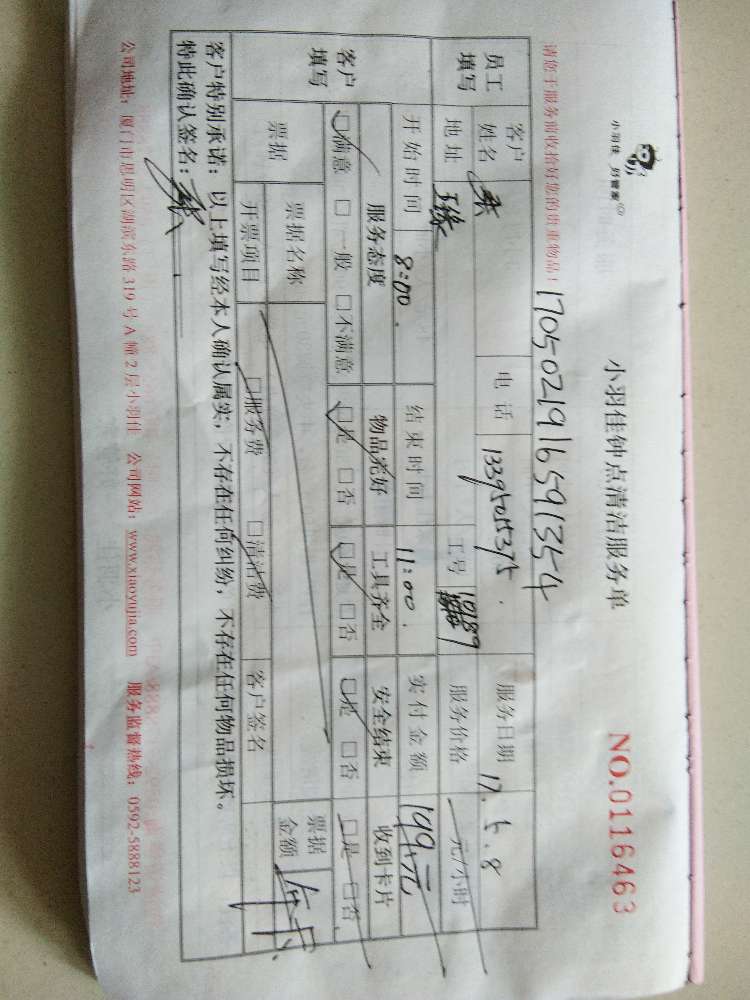 小羽佳 好管家
小羽佳钟点清洁服务单
NO.0116463
请您于服务前收拾好您的贵重物品！
1705021916591354
员工填写 客户姓名 电话 服务日期 17.5.8
地址 工号 10189 服务价格 元/小时
开始时间 8:00. 结束时间 11:00. 实付金额 149元
客户填写 服务态度 物品完好 工具齐全 安全结束 收到卡片
□满意 □一般 □不满意 □是 □否 □是 □否 □是 □否 □是 □否
票据 票据名称 票据金额
开票项目 □服务费 □清洁费 客户签名
客户特别承诺：以上填写经本人确认属实，不存在任何纠纷，不存在任何物品损坏。
特此确认签名：
公司地址：厦门市思明区湖滨东路319号A幢2层小羽佳 公司网站：www.xiaoyujia.com 服务监督热线：0592-5888123